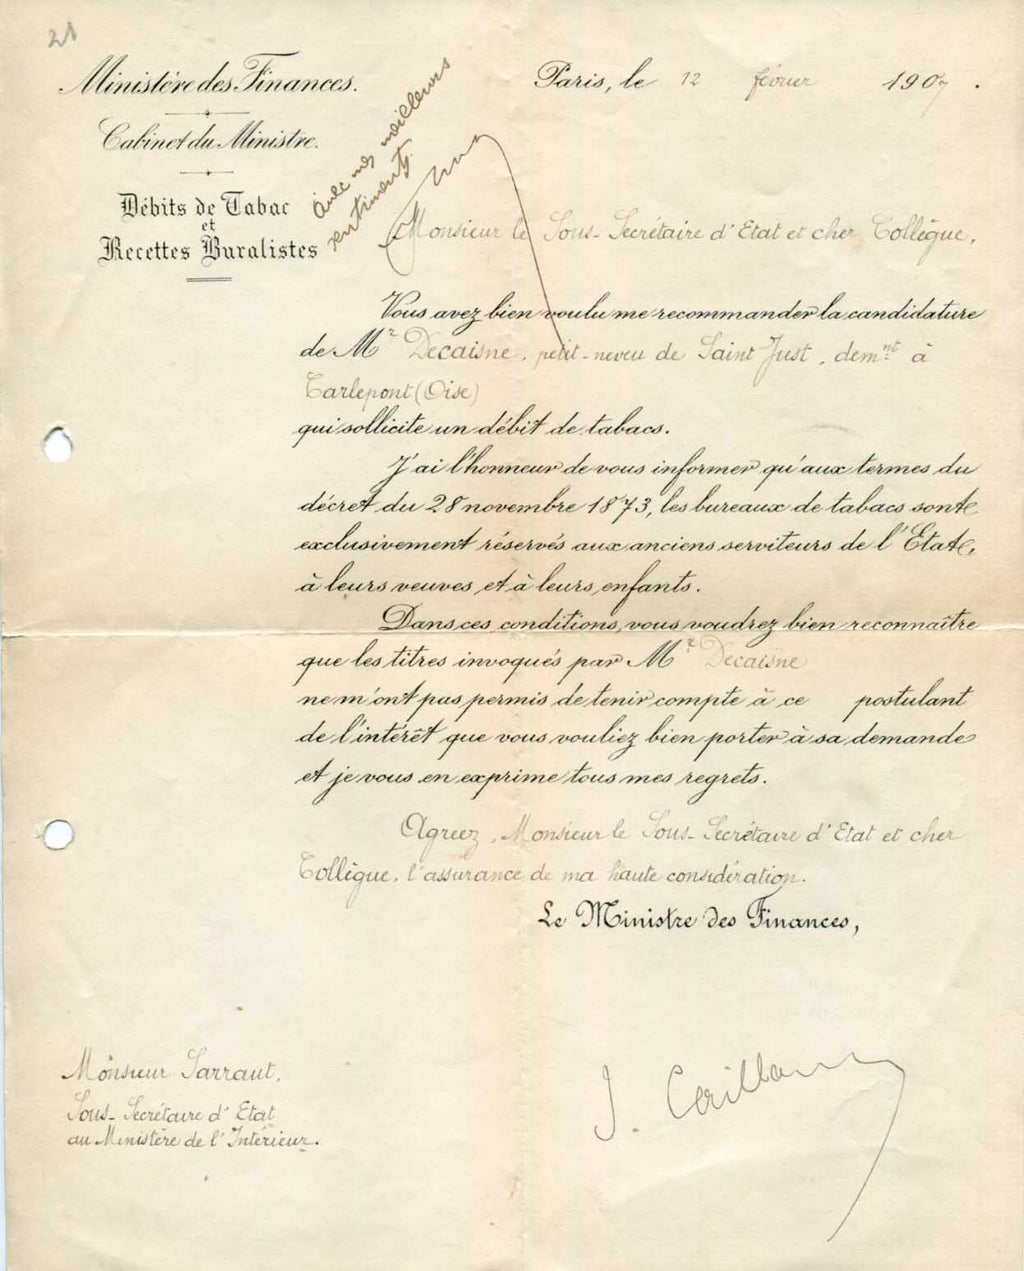 28
Ministère des Finances.
Cabinet du Ministre.
Débits de Tabac
et
Recettes Buralistes
Paris, le 12 février 1907.
Avec mes meilleurs
sentiments.
Monsieur le Sous-Secrétaire d'Etat et cher Collègue,
Vous avez bien voulu me recommander la candidature
de Mr Decaisne, petit-neveu de Saint Just, demnt à
Carlepont (Oise)
qui sollicite un débit de tabacs.
J'ai l'honneur de vous informer qu'aux termes du
décret du 28 novembre 1873, les bureaux de tabacs sont
exclusivement réservés aux anciens serviteurs de l'Etat,
à leurs veuves et à leurs enfants.
Dans ces conditions, vous voudrez bien reconnaître
que les titres invoqués par Mr Decaisne
ne m'ont pas permis de tenir compte à ce postulant
de l'intérêt que vous vouliez bien porter à sa demande
et je vous en exprime tous mes regrets.
Agréez, Monsieur le Sous-Secrétaire d'Etat et cher
Collègue, l'assurance de ma haute considération.
Le Ministre des Finances,
J. Caillaux
Monsieur Sarraut,
Sous-Secrétaire d'Etat
au Ministère de l'Intérieur.